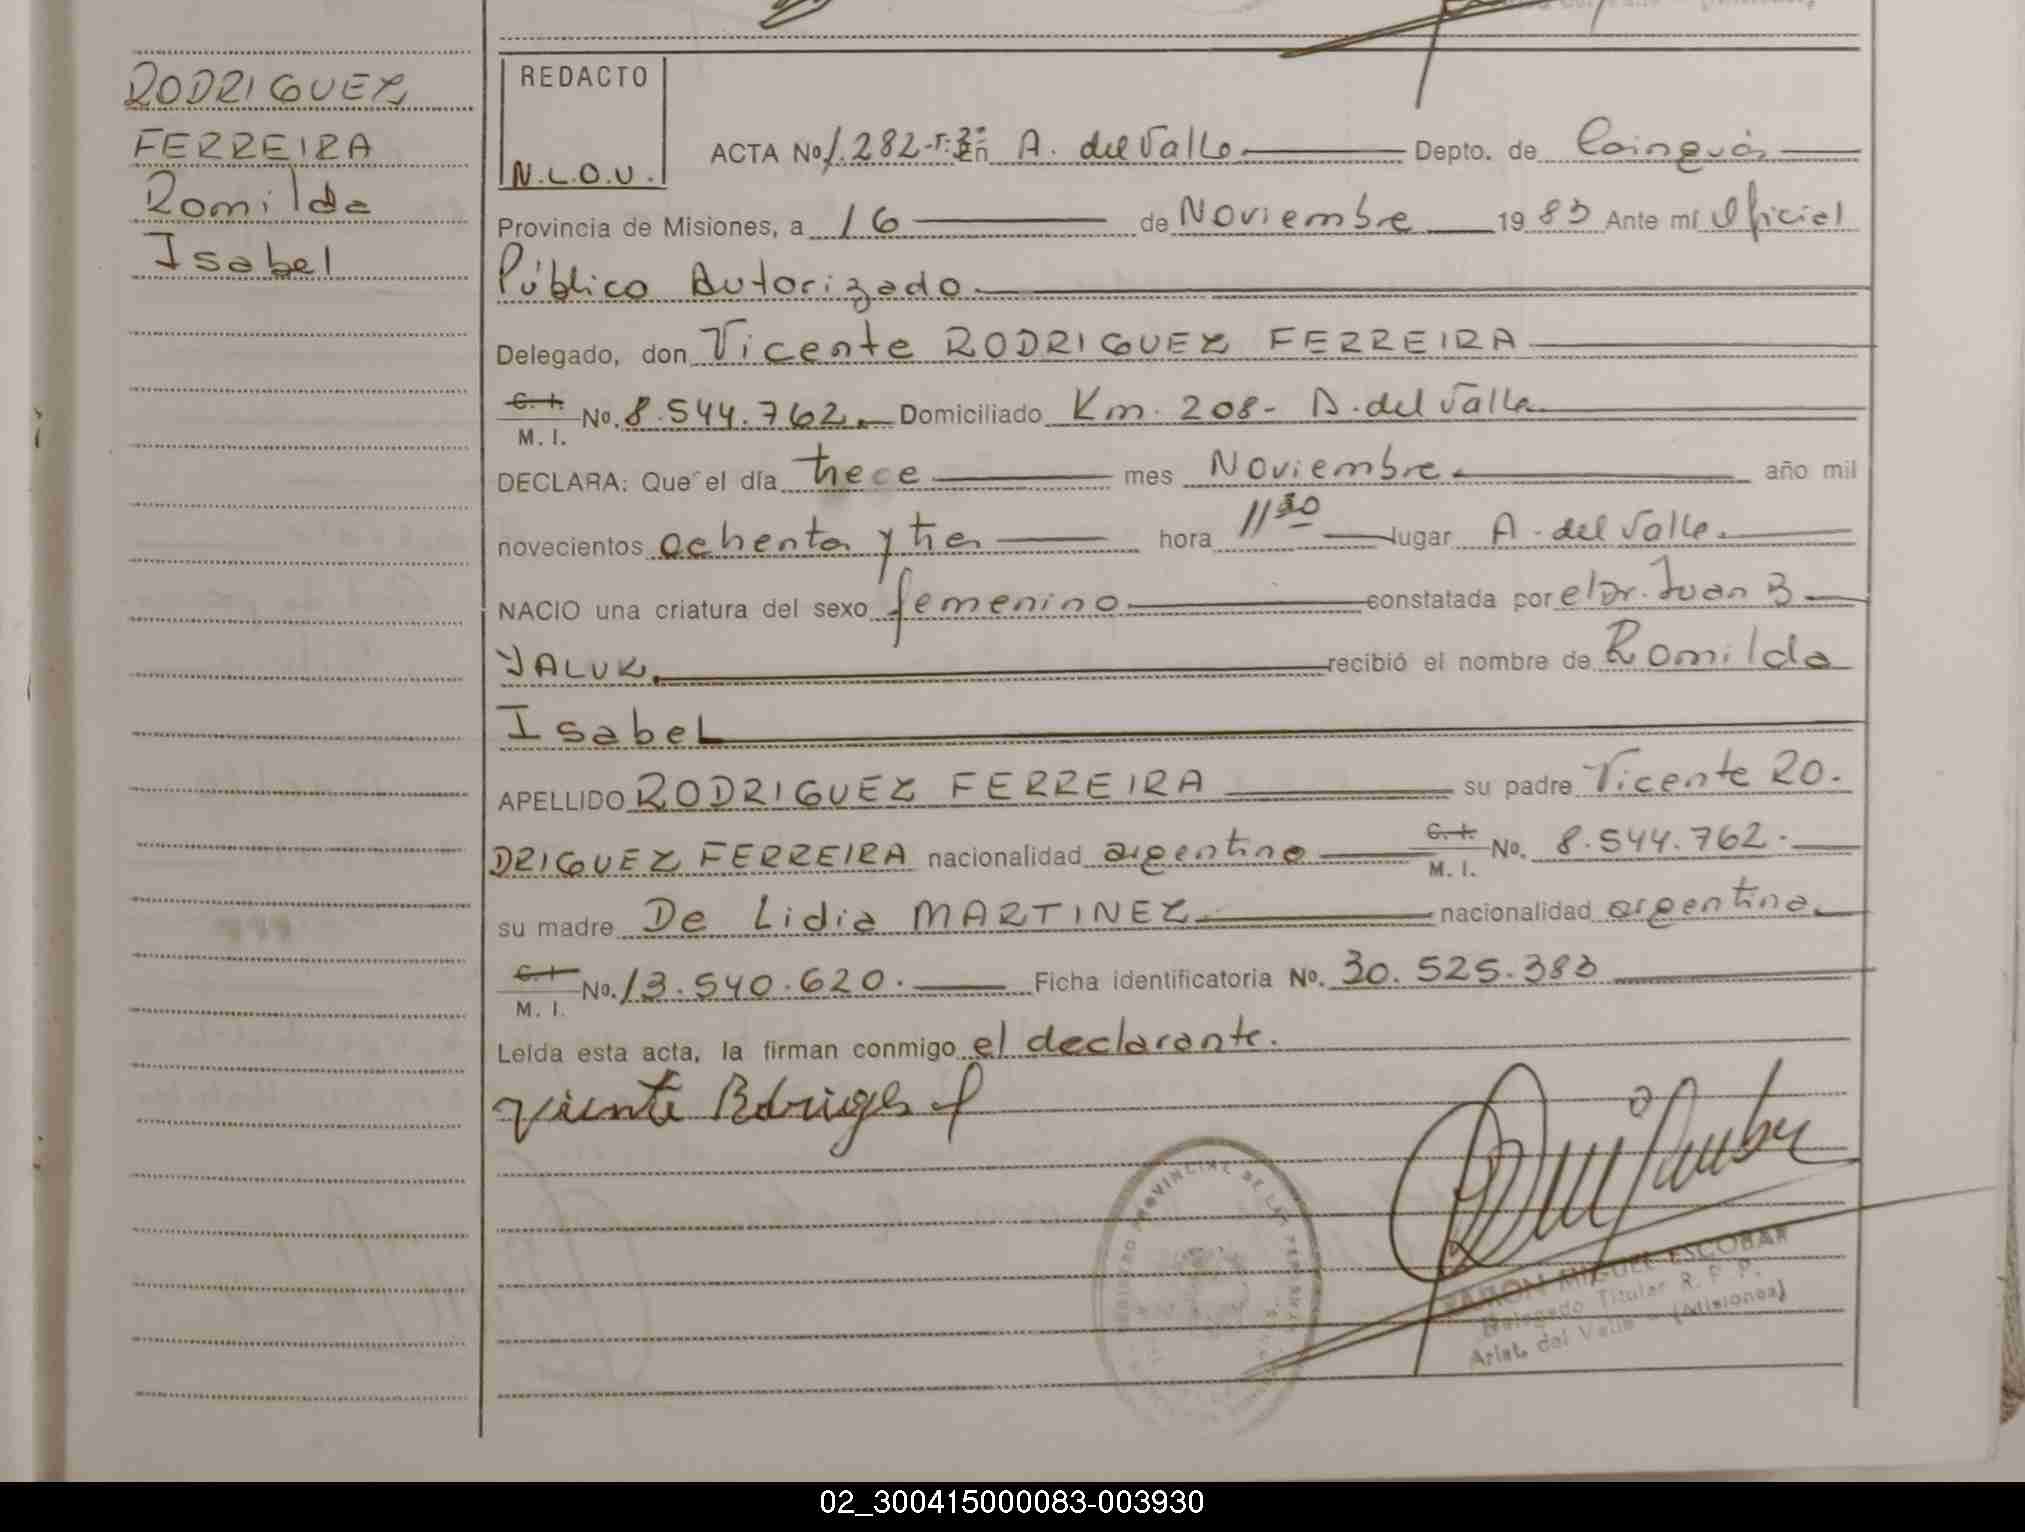 RODRIGUEZ
FERREIRA
Romilda
Isabel
REDACTO
N.L.O.U.
ACTA No 1.282-T:3º En A. del Valle Depto. de Cainguás
Provincia de Misiones, a 16 de Noviembre 1983 Ante mí Oficial
Público Autorizado
Delegado, don Vicente RODRIGUEZ FERREIRA
C. I. M. I. No. 8.544.762 Domiciliado Km. 208- A. del Valle
DECLARA: Que el día trece mes Noviembre año mil
novecientos ochenta y tres hora 11 30 lugar A. del Valle
NACIO una criatura del sexo femenino constatada por el Dr. Juan B
YALUK recibió el nombre de Romilda
Isabel
APELLIDO RODRIGUEZ FERREIRA su padre Vicente RO.
DRIGUEZ FERREIRA nacionalidad argentino C. I. M. I. No. 8.544.762.
su madre De Lidia MARTINEZ nacionalidad argentina
C. I. M. I. No. 13.540.620. Ficha identificatoria No. 30.525.383
Leída esta acta, la firman conmigo el declarante.
Vicente Rodrigues f
REGISTRO PROVINCIAL DE LAS PERSONAS
RAMON MIGUEL ESCOBAR
Delegado Titular R. P. P.
Arist. del Valle - (Misiones)
02_300415000083-003930